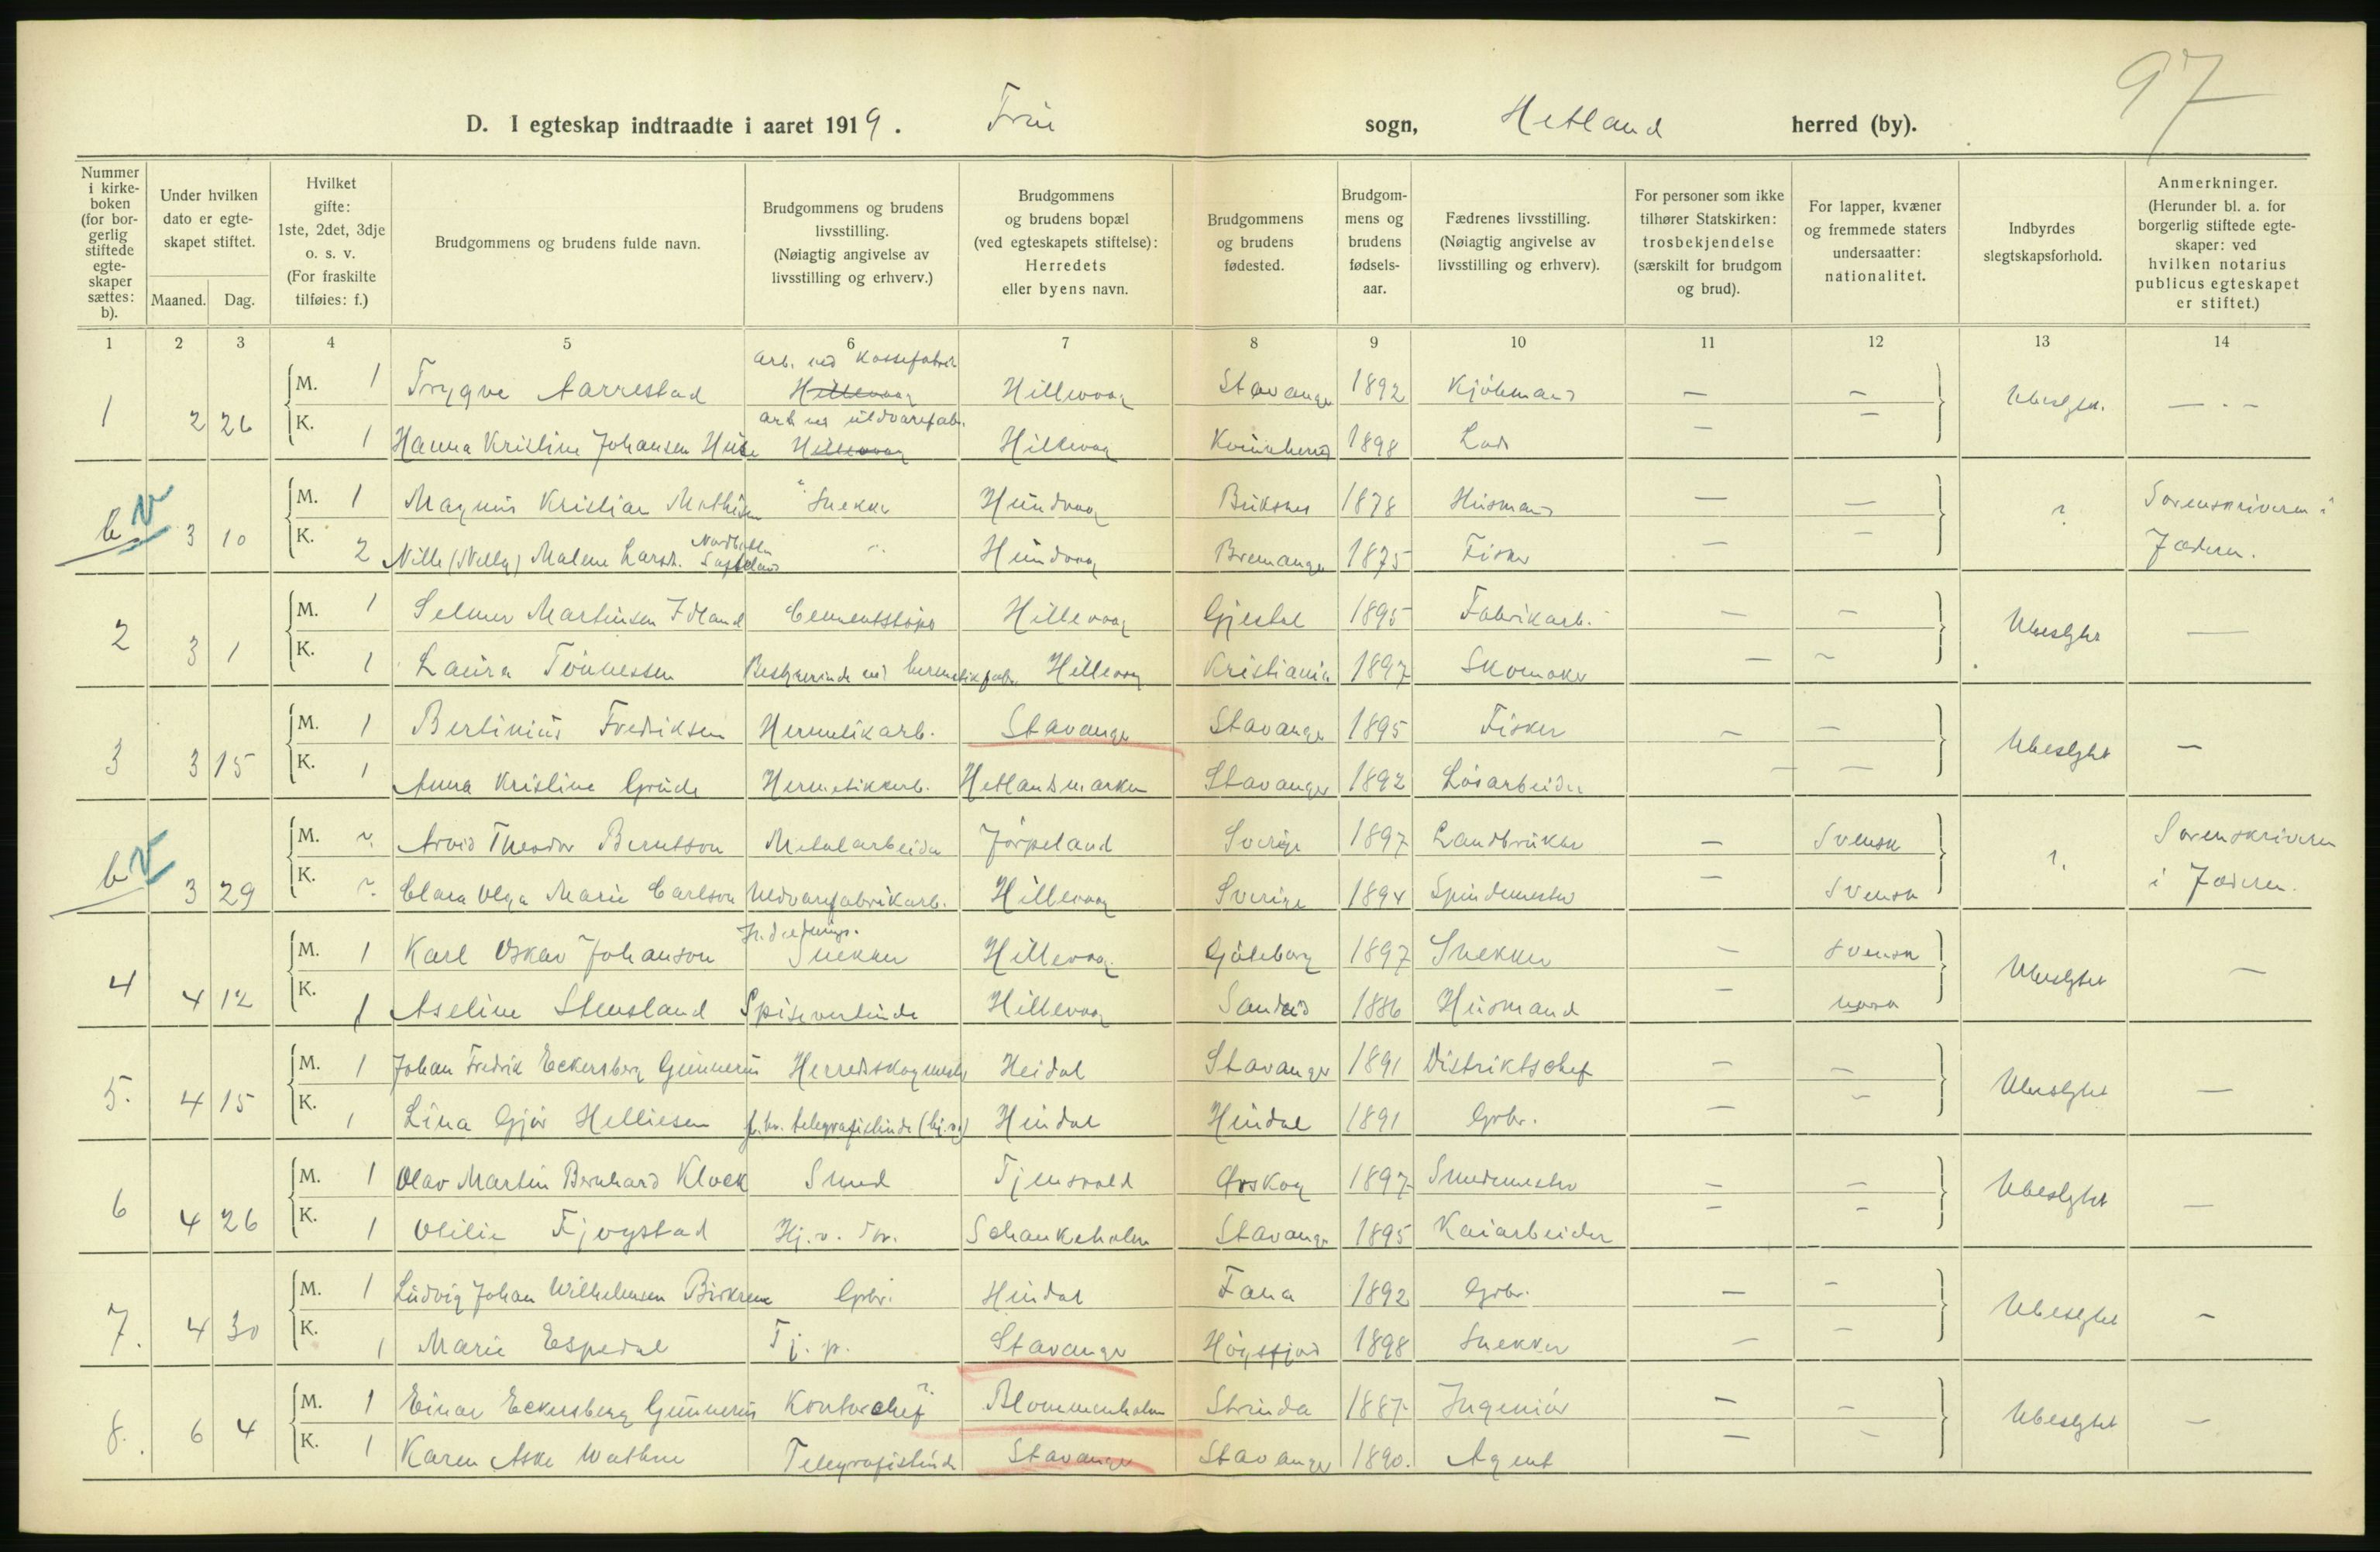 97
D. I egteskap indtraadte i aaret 1919. Frue sogn, Hetland herred (by).
Nummer i kirkeboken (for borgerlig stiftede egteskaper sættes: b).
Under hvilken dato er egteskapet stiftet.
Maaned. Dag.
Hvilket gifte: 1ste, 2det, 3dje o. s. v. (For fraskilte tilføies: f.)
Brudgommens og brudens fulde navn.
Brudgommens og brudens livsstilling. (Nøiagtig angivelse av livsstilling og erhverv.)
Brudgommens og brudens bopæl (ved egteskapets stiftelse): Herredets eller byens navn.
Brudgommens og brudens fødested.
Brudgommens og brudens fødselsaar.
Fædrenes livsstilling. (Nøiagtig angivelse av livsstilling og erhverv).
For personer som ikke tilhører Statskirken: trosbekjendelse (særskilt for brudgom og brud).
For lapper, kvæner og fremmede staters undersaatter: nationalitet.
Indbyrdes slegtskapsforhold.
Anmerkninger. (Herunder bl. a. for borgerlig stiftede egteskaper: ved hvilken notarius publicus egteskapet er stiftet.)
1 2 3 4 5 6 7 8 9 10 11 12 13 14
arb. ved Kassefabrik
M. 1 Trygve Aarrestad Hillevaag Hillevaag Stavanger 1892 Kjöbmand — —
1 2 26 Ubeslgtet. — . —
arb ved uldvarefab.
K. 1 Hanna Kristine Johansen Huse Hillevaag Hillevaag Kvinnherad 1898 Lods — —
M. 1 Magnus Kristian Mathisen Snekker Hundvaag Buksnes 1878 Husmand — — Sorenskriveren i
b. 3 10 ?
K. 2 Nille (Nelly) Malene Larsd. Hundvaag Bremanger 1875 Fisker — — Jæderen.
M. 1 Selmer Martinsen Idland Cementstöper Hillevaag Gjestal 1895 Fabrikarb. — —
2 3 1 Ubeslgtet —
K. 1 Laura Tönnessen Bestyrerinde ved hermetikfabr. Hillevaag Kristiania 1897 Skomaker — —
M. 1 Bertinius Fredriksen Hermetikarb. Stavanger Stavanger 1895 Fisker — —
3 3 15 Ubeslgtet —
K. 1 Anna Kristine Grude Hermetikkarb. Hetlandsmarken Stavanger 1892 Lösarbeider — —
M. ? Arvid Theodor Berntsson Metalarbeider Jörpeland Sverige 1897 Landbruker — Svensk Sorenskriveren
b 3 29 ?
K. ? Clara Olga Marie Carlson Uldvarefabrikarb. Hillevaag Sverige 1894 Spindemester — Svensk i Jæderen.
M. 1 Karl Oskar Johanson Snekker Hillevaag Göteborg 1897 Snekker — svensk
4 4 12 Ubeslgtet —
K. 1 Aseline Stensland Spisevertinde Hillevaag Sandeid 1886 Husmand — norsk
M. 1 Johan Fredrik Eckersberg Gunnerus Herredskogmester Heidal Stavanger 1891 Distriktschef — —
5. 4 15 Ubeslgtet —
K. 1 Lina Gjør Helliesen f. hv. telegrafistinde (hj.v.) Hindal Hindal 1891 Grbr. — —
M. 1 Olav Martin Bernhard Klock Smed Tjensvold Ørskog 1897 Smedmester — —
6 4 26 Ubeslgtet —
K. 1 Otilie Fjogstad Hj. v. For. Schankeholm Stavanger 1895 Kaiarbeider — —
M. 1 Ludvig Johan Wilhelmsen Birkrem Grbr. Hindal Fana 1892 Grbr. — —
7. 4 30 Ubeslgtet —
K. 1 Marie Espedal Tj. p. Stavanger Högsfjord 1898 Snekker — —
M. 1 Einar Eckersberg Gunnerus Kontorchef Blommenholm Strinda 1887 Ingeniör — —
8. 6 4 Ubeslgtet —
K. 1 Karen Aske Wathne Telegrafistinde Stavanger Stavanger 1890. Agent — —